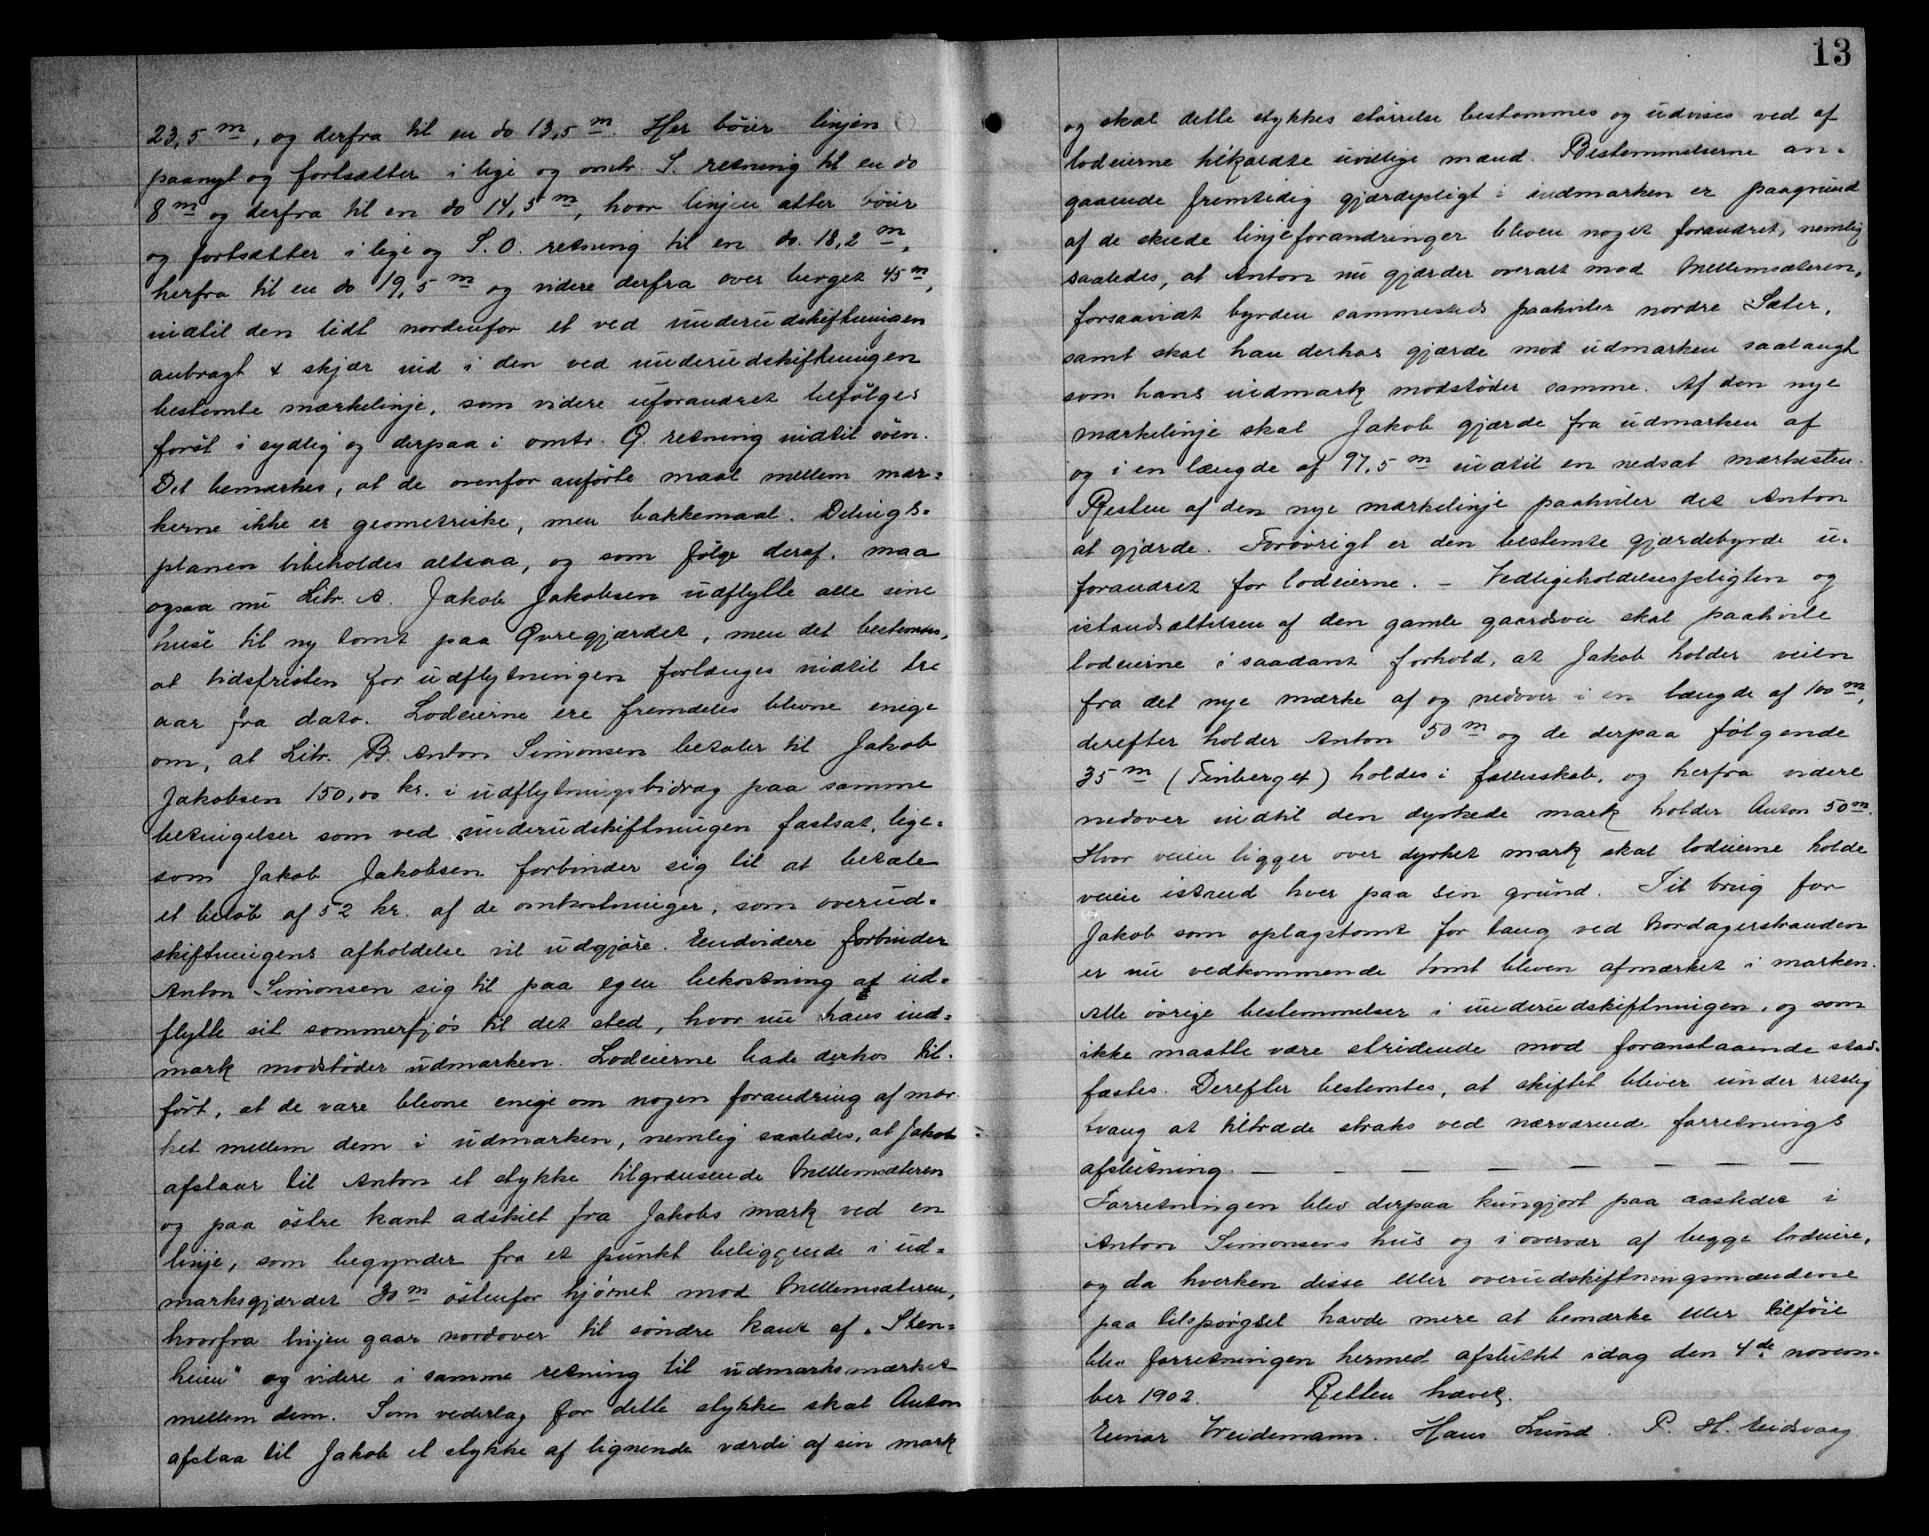 23,5 m, og derfra til en do 13,5 m. Her böier linjen
paanyt og fortsætter i lige og omtr. S. retning til en do
8 m og derfra til en do 14,5 m, hvor linjen atter böier
og fortsætter i lige og S.O. retning til en do. 18,2 m,
herfra til en do 19,5 m og videre derfra over berget 45 m,
indtil den lidt nordenfor et ved underudskiftningen
anbragt x skjær ind i den ved underudskiftningen
bestemte mærkelinje, som videre uforandret befölges
först i sydlig og derpaa i omtr. Ø. retning indtil söen.
Det bemærkes, at de ovenfor anförte maal mellem mær-
kerne ikke er geometriske, men bakkemaal. Delings-
planen bibeholdes altsaa, og som fölge deraf maa
ogsaa nu Litr. A. Jakob Jakobsen udflytte alle sine
huse til ny tomt paa Øvregjærdet, men det bestemtes,
at tidsfristen for udflytningen forlænges indtil tre
aar fra dato. Lodeierne ere fremdeles blevne enige
om, at Litr. B. Anton Simonsen betaler til Jakob
Jakobsen 150,00 kr. i udflytningsbidrag paa samme
betingelser som ved underudskiftningen fastsat, lige-
som Jakob Jakobsen forbinder sig til at betale
et belöb af 52 kr. af de omkostninger, som overud-
skiftningens afholdelse vil udgjöre. Endvidere forbinder
Anton Simonsen sig til paa egen bekostning at ud-
flytte sit sommerfjös til det sted, hvor nu hans ind-
mark modstöder udmarken. Lodeierne lade derhos til-
fört, at de vare blevne enige om nogen forandring af mær-
ket mellem dem i udmarken, nemlig saaledes, at Jakob
afstaar til Anton et stykke tilgrænsende Mellemsæteren
og paa östre kant adskilt fra Jakobs mark ved en
linje, som begynder fra et punkt beliggende i ud-
marksgjærdet 30 m östenfor hjörnet mod Mellemsæteren,
hvorfra linjen gaar nordover til söndre kant af "Sten-
heien" og videre i samme retning til udmarksmærket
mellem dem. Som vederlag for dette stykke skal Anton
afstaa til Jakob et stykke af lignende værdi af sin mark
13
og skal dette stykkes störrelse bestemmes og udvises ved af
lodeierne tilkaldte uvillige mænd. Bestemmelserne an-
gaaende fremtidig gjærdepligt i indmarken er paagrund
af de skede linjeforandringer bleven noget forandret, nemlig
saaledes, at Anton nu gjærder overalt mod Mellemsæteren,
forsaavidt byrden sammesteds paahviler nordre Sæter,
samt skal han derhos gjærde mod udmarken saalangt
som hans indmark modstöder samme. Af den nye
mærkelinje skal Jakob gjærde fra udmarken af
og i en længde af 97,5 m indtil en nedsat mærkesten.
Resten af den nye mærkelinje paahviler det Anton
at gjærde. Forövrigt er den bestemte gjærdebyrde u-
forandret for lodeierne. – Vedligeholdelsespligten og
istandsættelsen af den gamle gaardsvei skal paahvile
lodeierne i saadant forhold, at Jakob holder veien
fra det nye mærke af og nedover i en længde af 100 m,
derefter holder Anton 50 m og de derpaa fölgende
35 m (Finberget) holdes i fællesskab, og herfra videre
nedover indtil den dyrkede mark holder Anton 50 m.
Hvor veien ligger over dyrket mark skal lodeierne holde
veien istand hver paa sin grund. Til brug for
Jakob som oplagstomt for taug ved Nordagerstranden
er nu vedkommende tomt bleven afmærket i marken.
Alle övrige bestemmelser i underudskiftningen, og som
ikke maatte være stridende mod foranstaaende stad-
fæstes. Derefter bestemtes, at skiftet bliver under retslig
tvang at tiltræde straks ved nærværende forretnings
afslutning. — — — — — — — —
Forretningen blev derpaa kungjort paa aastedet i
Anton Simonsens hus og i overvær af begge lodeiere,
og da hverken disse eller overudskiftningsmændene
paa tilspörgsel havde mere at bemærke eller tilföie
blev forretningen hermed afsluttet idag den 4de novem-
ber 1902. Retten hævet.
Einar Weidemann. Hans Lund. P. H. Eidsvaag